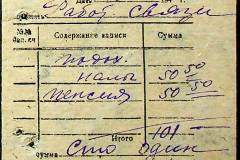 Дата
Работ связи
№№ Содержание записи Сумма
подох.
налог 50 50
пенсия 50 50
Итого 101 -
сумма Сто один